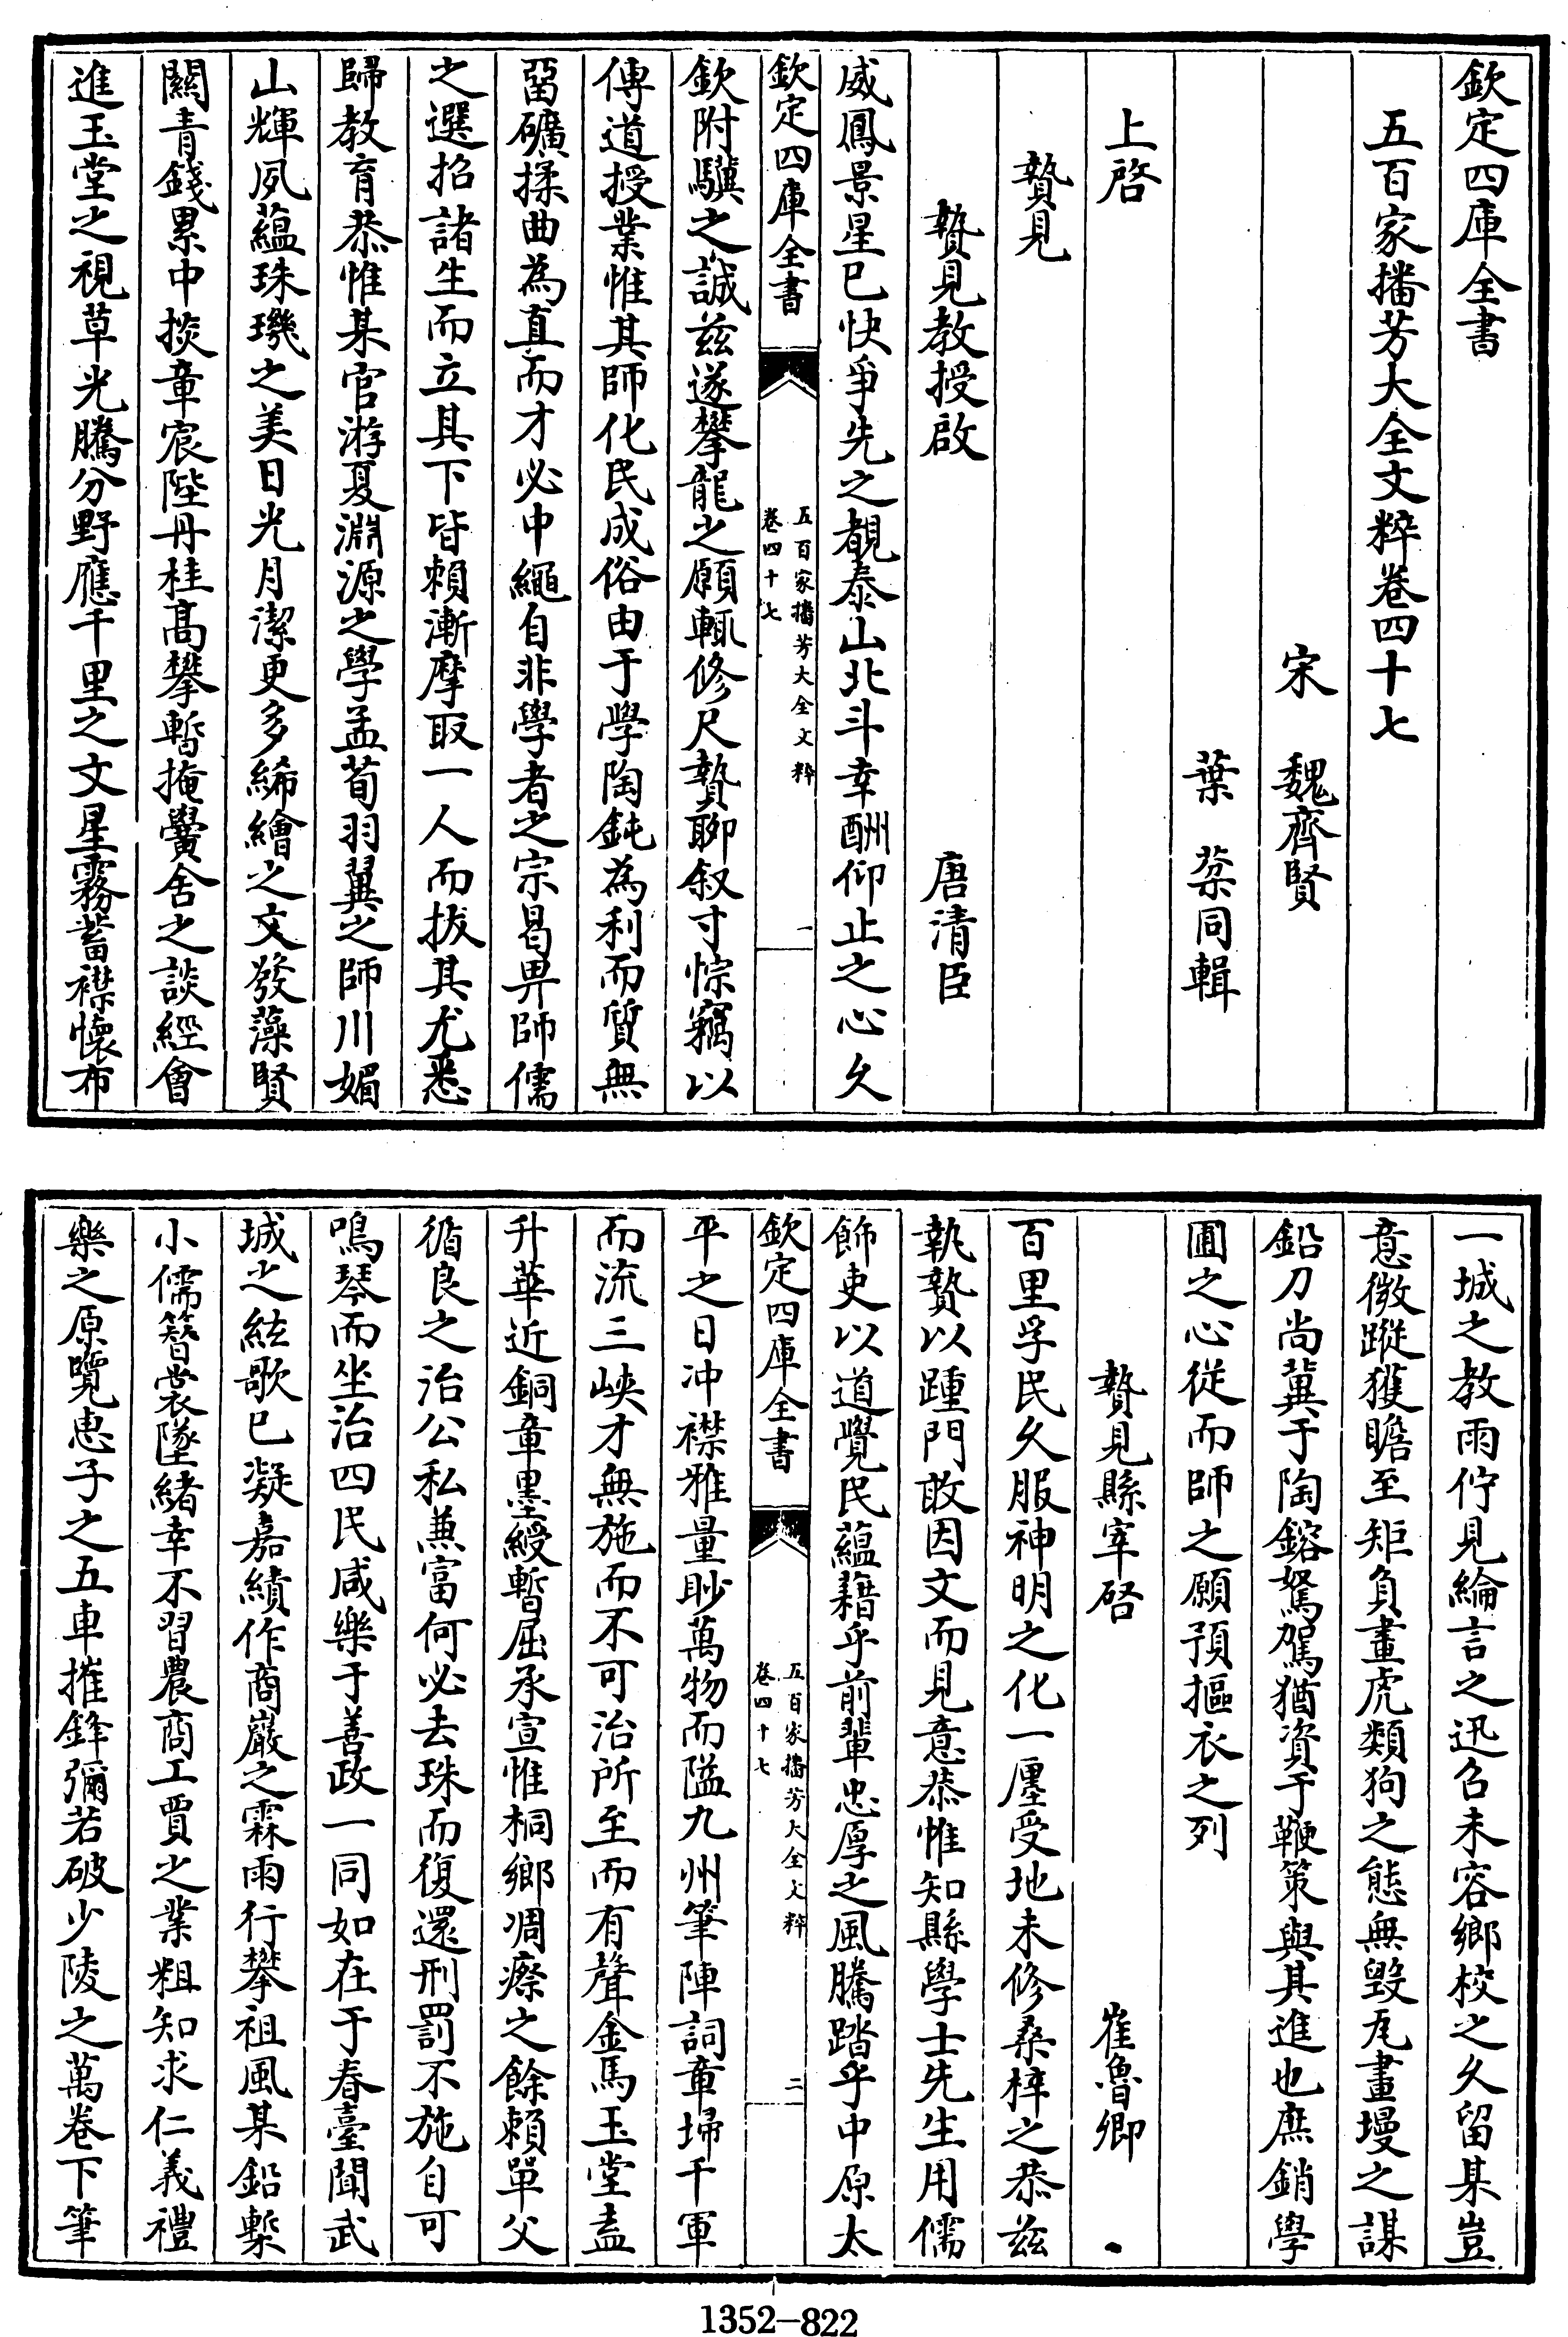 欽定四庫全書
五百家播芳大全文粹卷四十七
宋 魏齊賢
葉 棻同輯
上啓
贄見
贄見教授啟 唐清臣
威鳳景星已快爭先之覩泰山北斗幸酬仰止之心久
欽定四庫全書
五百家播芳大全文粹
卷四十七
一
欽附驥之誠兹遂攀龍之願輒修尺贄聊叙寸悰竊以
傳道授業惟其師化民成俗由于學陶鈍為利而質無
留礦揉曲為直而才必中繩自非學者之宗曷畀師儒
之選招諸生而立其下皆賴漸摩取一人而拔其尤悉
歸教育恭惟某官游夏淵源之學孟荀羽翼之師川媚
山輝夙藴珠璣之美日光月潔更多絺繪之文發藻賢
關青錢累中掞章宸陛丹桂髙攀暫掩黌舍之談經會
進玉堂之視草光騰分野應千里之文星霧蓄襟懐布
一城之教雨佇見綸言之迅召未容鄉校之久留某豈
意微蹤獲瞻至矩負畫虎類狗之態無毁瓦畫墁之謀
鉛刀尚冀于陶鎔駑駕猶資于鞭策與其進也庶銷學
圃之心從而師之願預摳衣之列
贄見縣宰啓 崔魯卿
百里孚民久服神明之化一廛受地未修桑梓之恭兹
執贄以踵門敢因文而見意恭惟知縣學士先生用儒
飾吏以道覺民藴藉乎前輩忠厚之風騰踏乎中原太
欽定四庫全書
五百家播芳大全文粹
卷四十七
二
平之日冲襟雅量眇萬物而隘九州筆陣詞章埽千軍
而流三峽才無施而不可治所至而有聲金馬玉堂盍
升華近銅章墨綬暫屈承宣惟桐鄉凋瘵之餘賴單父
循良之治公私兼富何必去珠而復還刑罰不施自可
鳴琴而坐治四民咸樂于善政一同如在于春臺聞武
城之絃歌已凝嘉績作商巖之霖雨行攀祖風某鉛槧
小儒簪裳墜緒幸不習農商工賈之業粗知求仁義禮
樂之原覽惠子之五車摧鋒彌若破少陵之萬卷下筆
1352-822